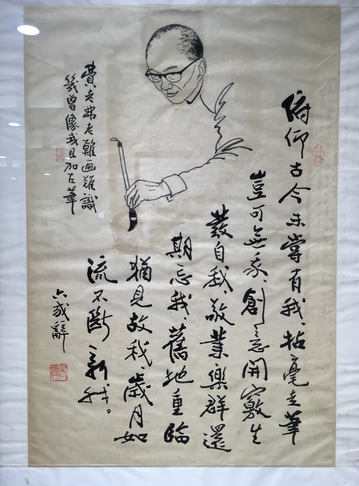 俯仰古今未嘗有我拈毫走筆
豈可無我創意開竅生
發自我敬業樂群還
期忘我舊地重臨
猶見故我歲月如
流不斷新我
六我辭
費 難画難識
幾曾像我且加 筆